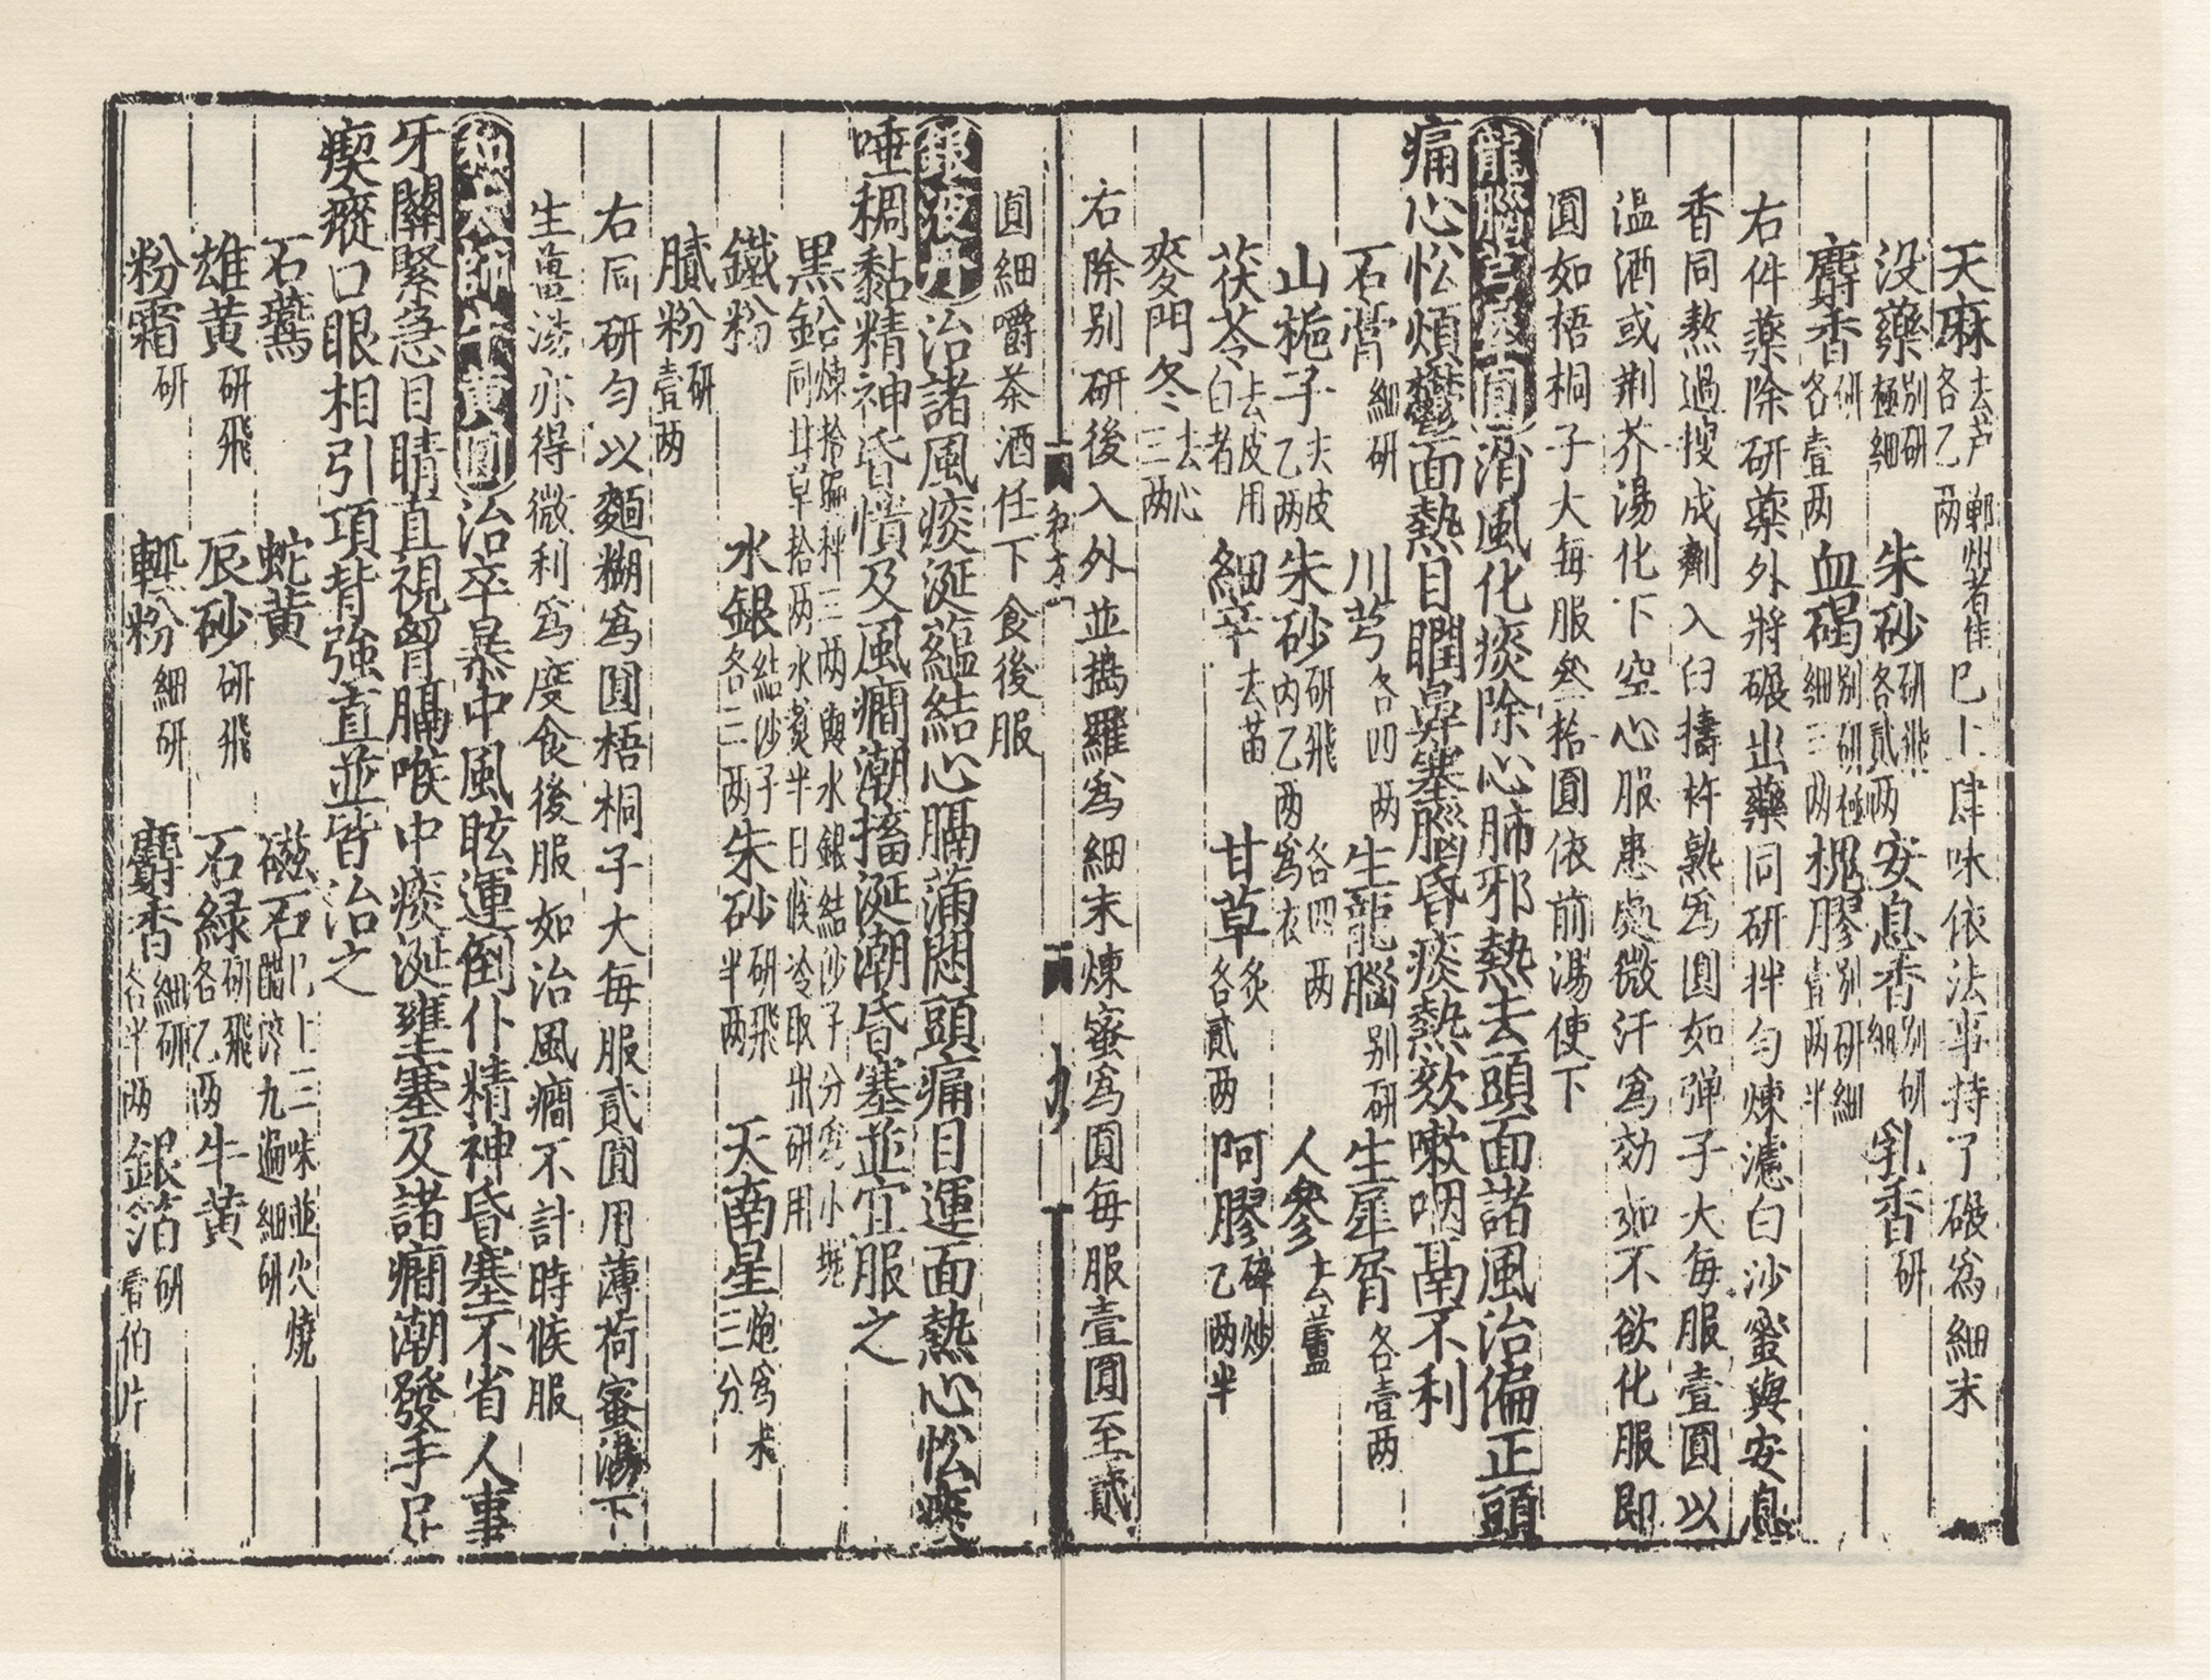 天麻去芦各乙两鄆州者佳 已上肆味依法事持了碾為細末
没藥別研極細 朱砂研飛各貳两 安息香別研細 乳香研
麝香研各壹两 血碣別研研極細三两 槐膠別研細壹两半
右件藥除研藥外將碾出藥同研拌匀煉濾白沙蜜與安息
香同熬過搜成劑入臼擣杵熟為圓如弹子大每服壹圓以
温酒或荆芥湯化下空心服患處微汗為効如不欲化服即
圓如梧桐子大每服叁拾圓依前湯使下
龍腦芎犀圓消風化痰除心肺邪熱去頭面諸風治偏正頭
痛心忪煩鬱面熱目瞤鼻塞腦昏痰熱欬嗽咽鬲不利
石膏細研 川芎各四两 生龍腦別研 生犀屑各壹两
山梔子去皮乙两 朱砂研飛内乙两為衣各四两 人參去蘆
茯苓去皮用白者 細辛去苗 甘草炙各貳两 阿膠碎炒乙两半
麥門冬去心三两
右除別研後入外並擣羅為細末煉蜜為圓每服壹圓至貳
和方一
九
圓細嚼茶酒任下食後服
銀液丹治諸風痰涎蘊結心膈蒲悶頭痛目運面熱心忪痰
唾稠黏精神昏憒及風癎潮搐涎潮昏塞並宜服之
黑鉛煉拾遍秤三两與水銀結沙子分為小塊同甘草拾两水煑半日候冷取出研用
鐵粉 水銀結沙子各三两 朱砂研飛半两 天南星炮為末三分
膩粉研壹两
右同研匀以麵糊為圓梧桐子大每服貳圓用薄荷蜜湯下
生薑湯亦得微利為度食後服如治風癎不計時候服
和太師牛黄圓治卒暴中風眩運倒仆精神昏塞不省人事
牙關緊急目睛直視胷膈喉中痰涎壅塞及諸癎潮發手足
瘈瘲口眼相引項背強直並皆治之
石鷰 蛇黄 磁石已上三味並火燒醋淬九遍細研
雄黄研飛 辰砂研飛 石緑研飛各乙两 牛黄
粉霜研 輕粉細研 麝香細研各半两 銀箔研壹伯片